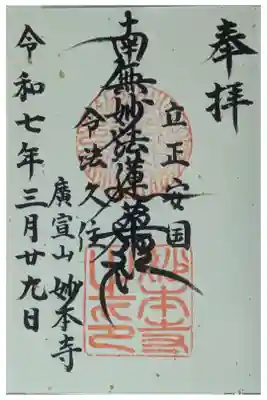 奉拝
立正安国
南無妙法蓮華経
令法久住
廣宣山 妙本寺
令和七年三月廿九日